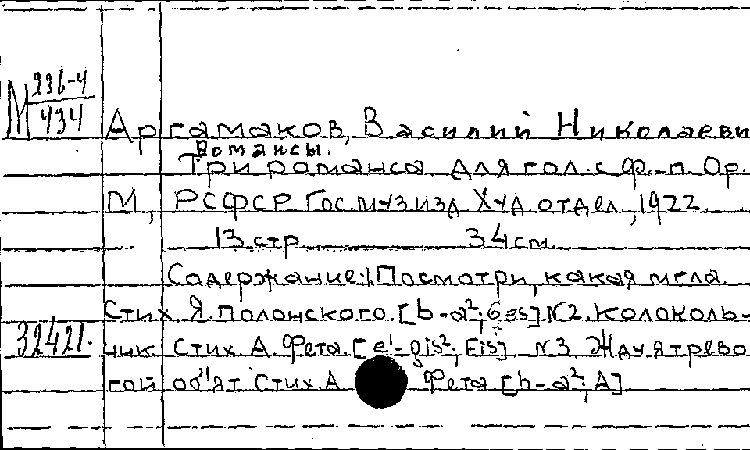 М 996-4
434
Аргамаков, Василий Николаеви
Романсы.
Три романса для гол. с ф.-п. Ор.
М, РСФСР Гос музизд Худ отдел, 1922
13 стр 34 см.
Содержание: 1. Посмотри, какая мгла.
Стих Я. Полонского. [b-a²; Ges] №2. Колоколь-
32421.
чик. Стих А. Фета. [e¹-gis²; Eis] №3. Жду я трево
гой об'ят Стих. А Фета [h-a²; A]